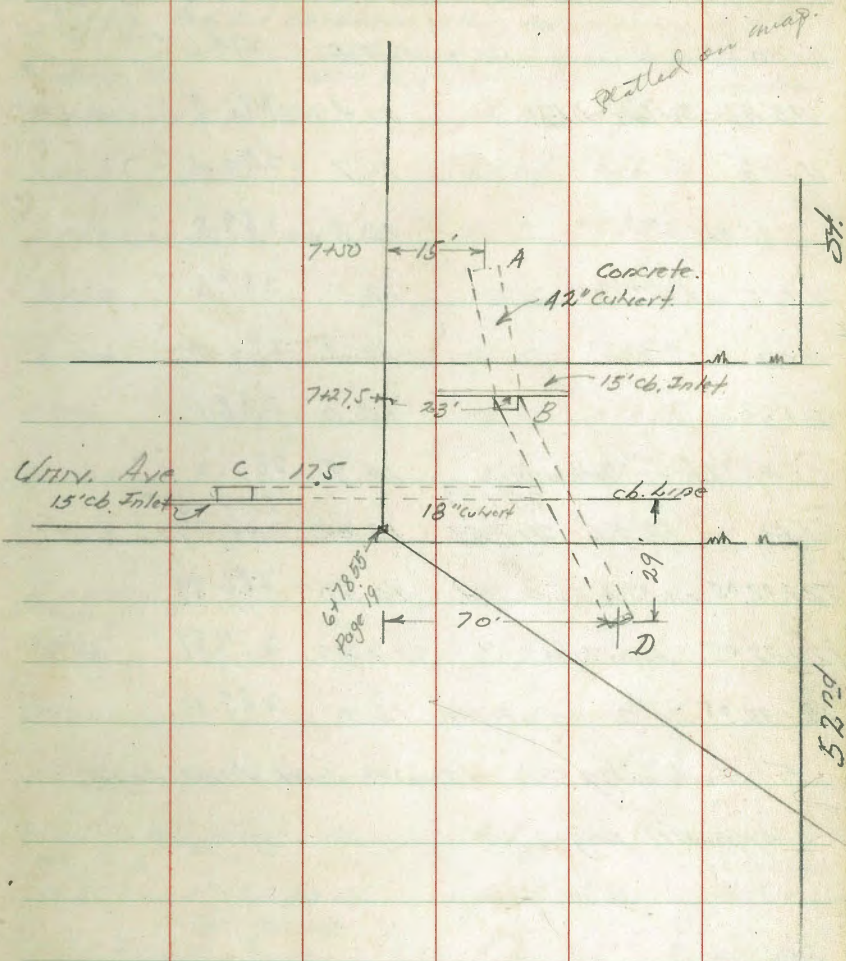 Platted on map.
St.
7+50
15'
A
Concrete.
42" Culvert.
15' cb. Inlet.
7+27.5
23'
B
Univ. Ave
C
17.5
15' cb. Inlet
18" Culvert
cb. Line
29'
6+78.55
Page 19
70'
D
52nd